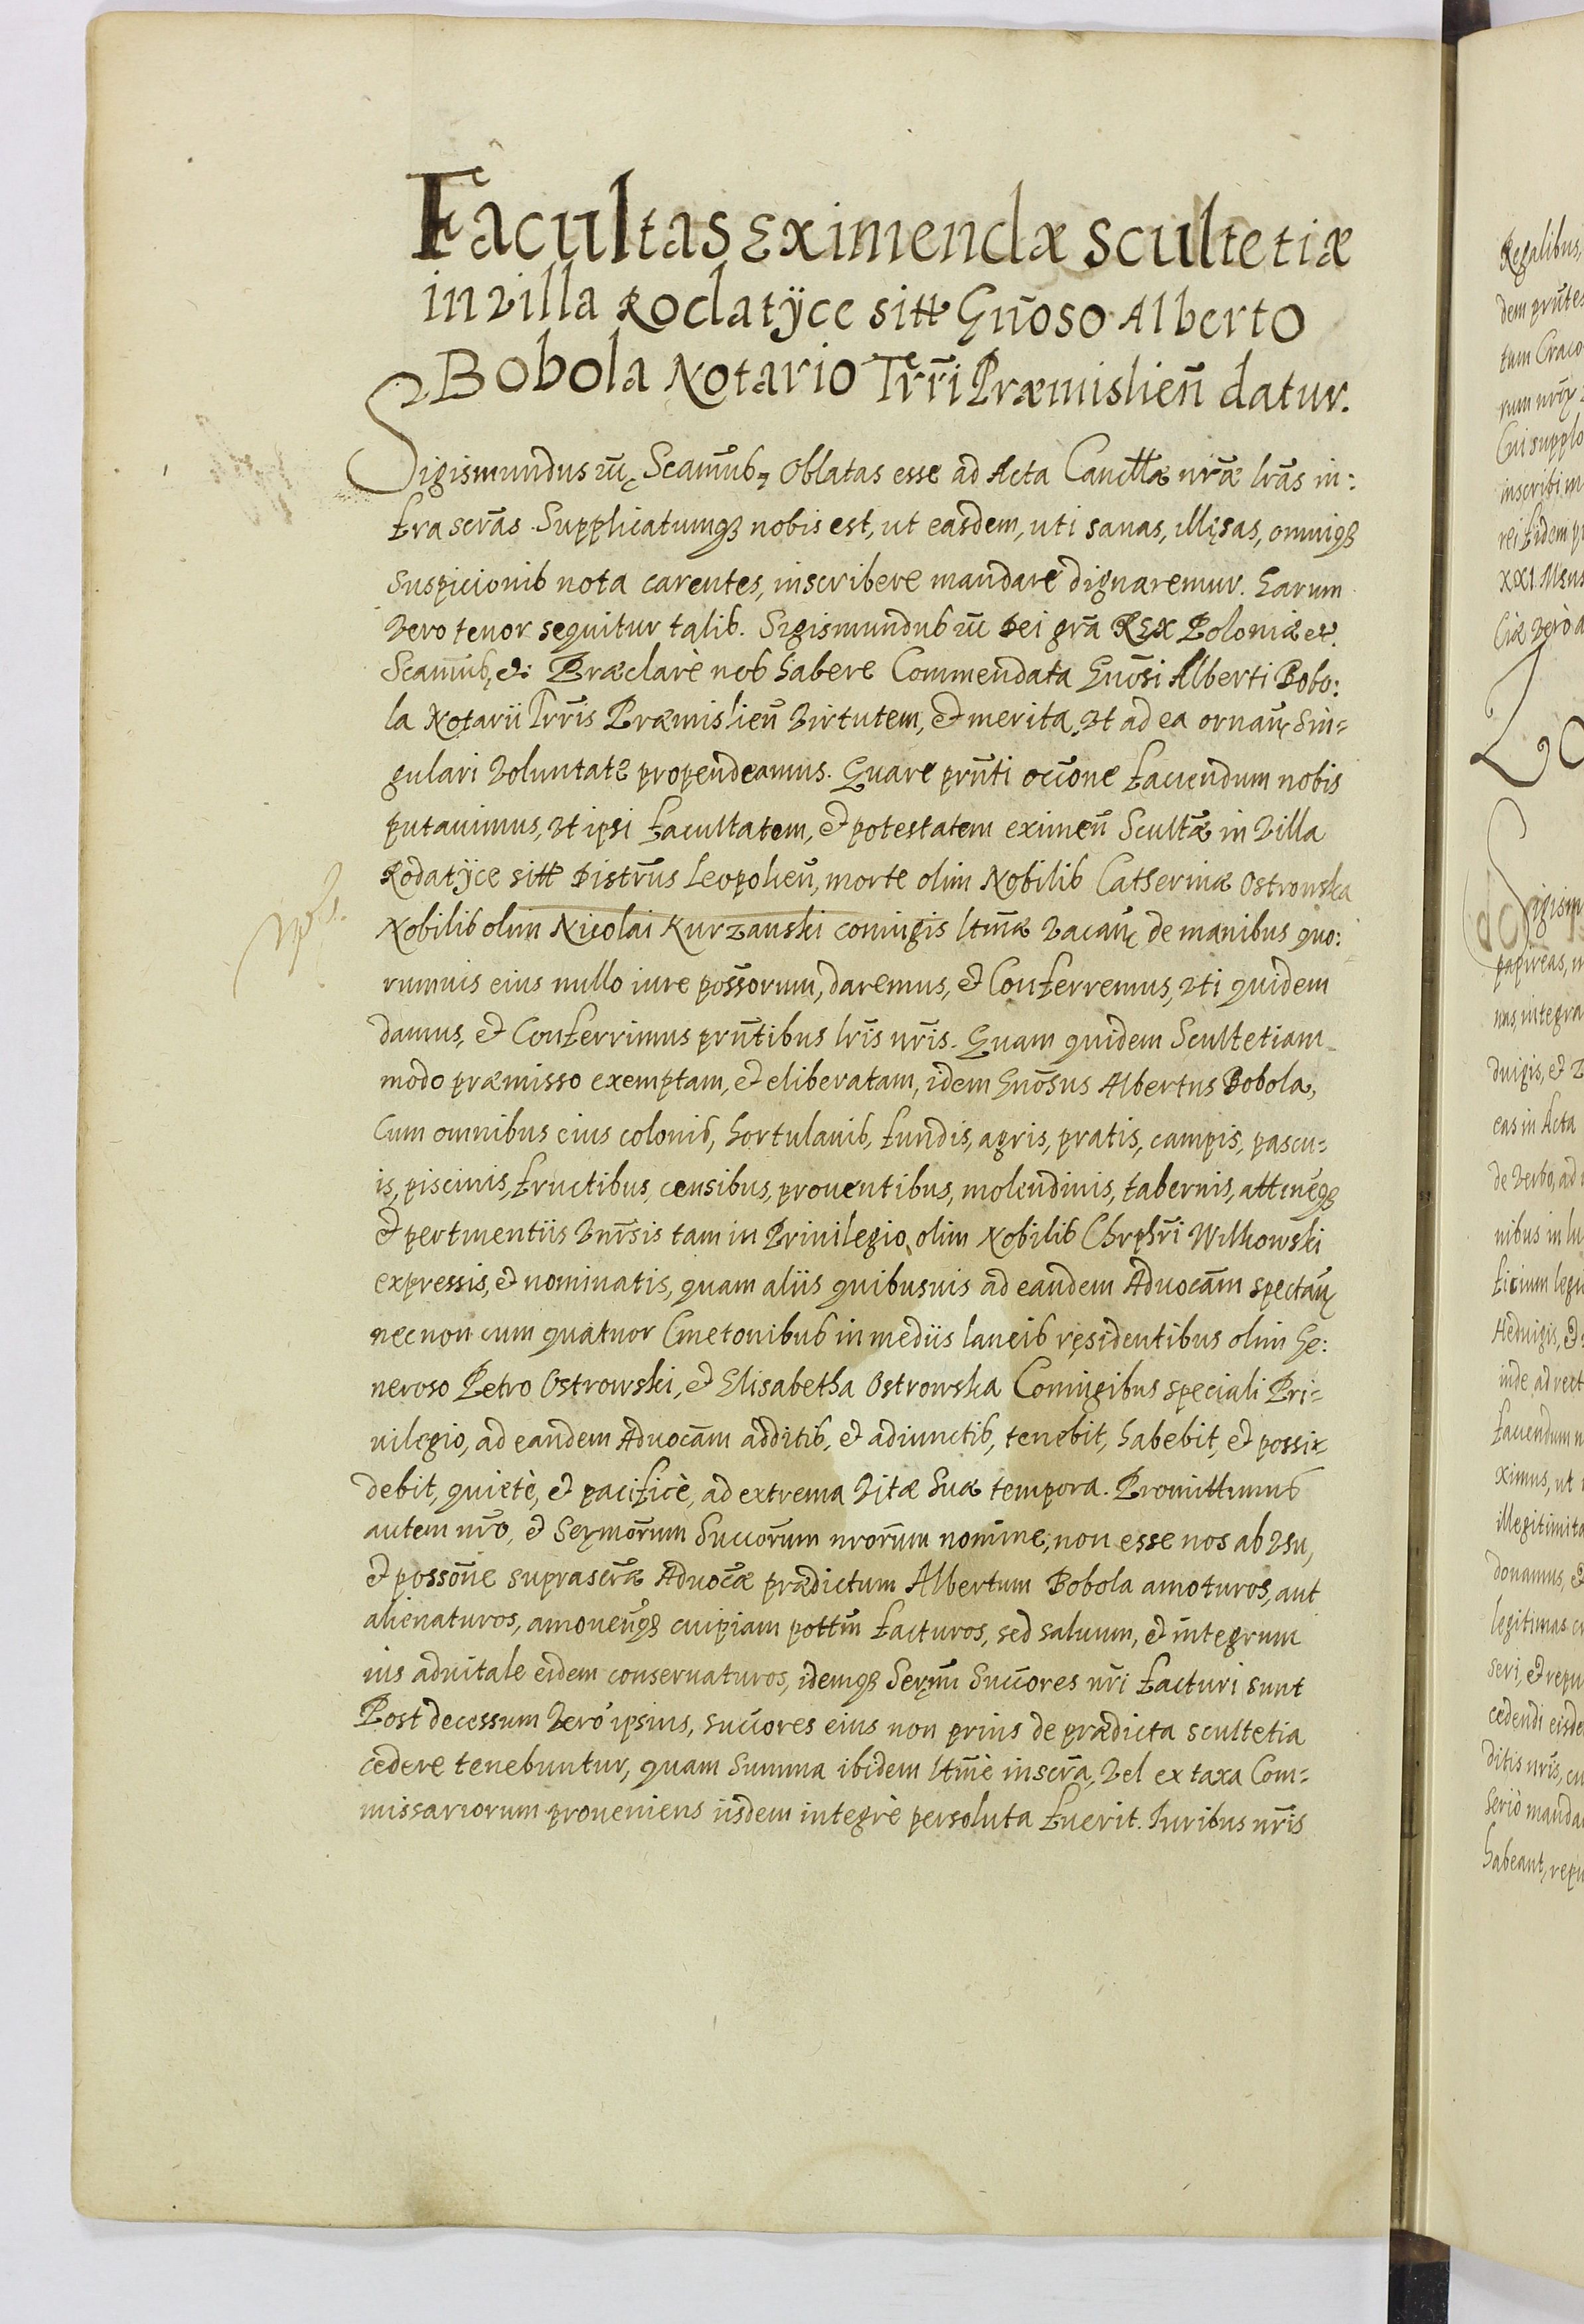 Facultas Eximendæ Scultetiæ
in villa Rodatÿce sitt Gn̄oso Alberto
Bobola Notario Terr̄i Præmislien̄ datur.
Sigismundus III, Scamus, Oblatas esse ad Acta Cancllæ nr̄æ lr̄as in:
frascr̄as. Supplicatumqꝫ nobis est, ut easdem, uti sanas, illęsas, omniqꝫ
suspicionis nota carentes, inscribere mandare dignaremur. Earum
vero tenor sequitur talis. Sigismundus III Dei grā REX Poloniæ etc.
Scamus, etc: Præclarè nob habere Commendata Gn̄osi Alberti Bobo:
la Notarii Trr̄is Præmislien̄ virtutem, et merita, Vt ad ea ornan̄ Sin=
gulari voluntate propendeamus. Quare prn̄ti occōne faciendum nobis
putauimus, Vt ipsi facultatem, et potestatem eximen̄ Scultæ in villa
Rodatÿce sitt Distrus Leopolien̄, morte olim Nobilis Catherinæ Ostrowska
Nobilis olim Nicolai Kurzanski coniugis ltm̄æ vacan̄ de manibus quo:
rumuis eius nullo iure poss̄orum, daremus, et Conferremus, Vti quidem
damus, et Conferrimus prn̄tibus lr̄is nr̄is. Quam quidem Scultetiam
modo præmisso exemptam, et eliberatam, idem Gn̄osus Albertus Bobola,
Cum omnibus eius colonis, hortulanis, fundis, agris, pratis, campis, pascu=
is, piscinis, fructibus, censibus, prouentibus, molendinis, tabernis, attinēqꝫ
et pertinentiis Vnr̄sis tam in Priuilegio olim Nobilis Chrphr̄i Wilkowski
expressis, et nominatis, quam aliis quibusuis ad eandem Aduocām spectan̄
necnon cum quatuor Cmetonibus in mediis laneis ręsidentibus olim Ge:
neroso Petro Ostrowski, et Elisabetha Ostrowska Coniugibus speciali Pri=
uilegio, ad eandem Aduocām additis, et adiunctis, tenebit, habebit, et possi=
debit, quietè, et pacificè, ad extrema Vitæ Suæ tempora. Promittimus
autem nr̄o, et Serm̄orum Succorum nrorum nomine, non esse nos ab Vsu,
et possōne suprascr̄æ Aduocæ prædictum Albertum Bobola amoturos, aut
alienaturos, amouen̄qꝫ cuipiam pottm̄ facturos, sed saluum, et integrum
ius aduitale eidem conseruaturos, idemqꝫ Serm̄i Succores nr̄i facturi sunt
Post decessum verò ipsius, succores eius non prius de prædicta scultetia
cedere tenebuntur, quam Summa ibidem ltm̄è inscr̄a, Vel ex taxa Com=
missariorum proueniens iisdem integrè persoluta fuerit. Iuribus nr̄is
Regalibus,
tum Craco
rei fidem
ciæ verò a
papireas,
nas integra
duigis, et
eas in Acta
de verbo, ad
nibus in
ficium legi
Heduigis, et
inde ad
ximus, ut
donamus, et
legitimas
seri, et repu
cedendi eisde
ditis nr̄is,
Seriò manda
habeant, repu